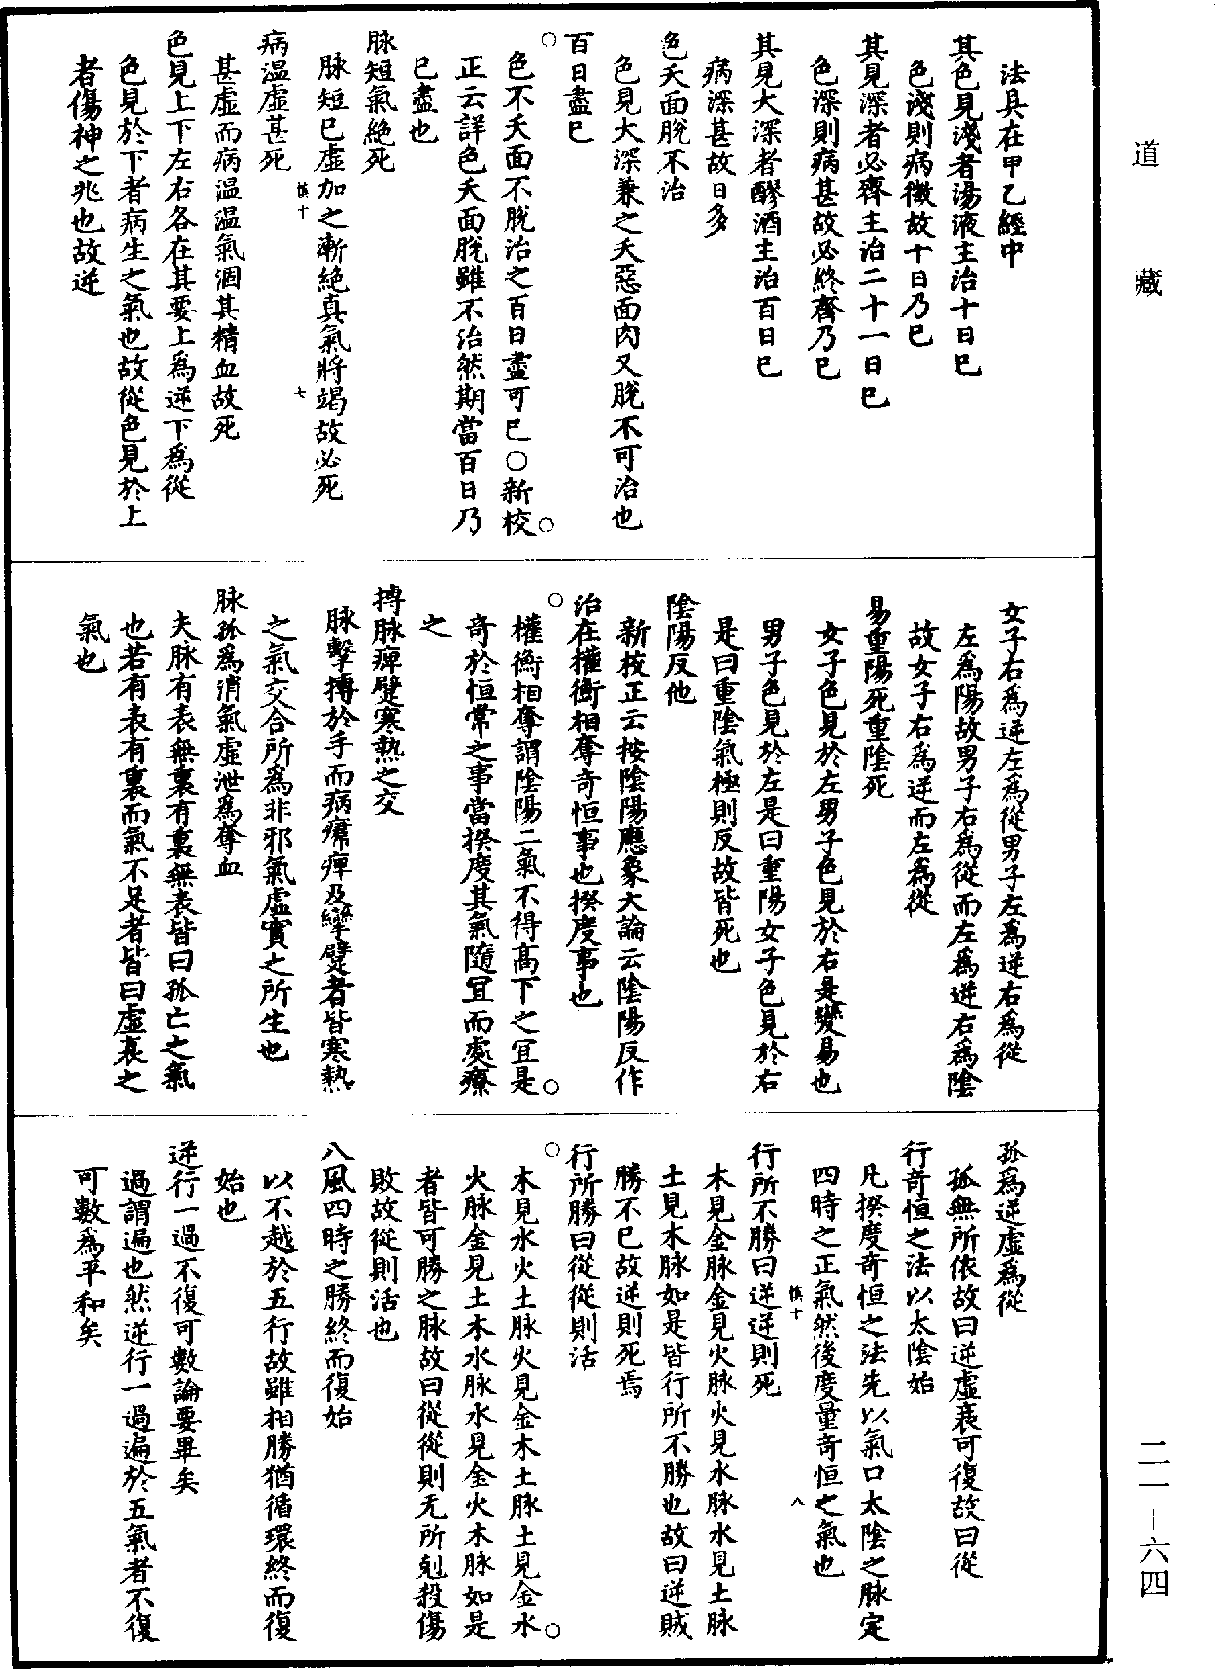 道藏
法具在甲乙經中
其色見淺者湯液主治十日已
色淺則病微故十日乃已
其見深者必齊主治二十一日已
色深則病甚故必終齊乃已
其見大深者醪酒主治百日已
病深甚故日多
色夭面脫不治
色見大深兼之夭惡面肉又脫不可治也
百日盡已
色不夭面不脫治之百日盡可已○新校
正云詳色夭面脫雖不治然期當百日乃
已盡也
脉短氣絶死
脉短已虛加之漸絶真氣將竭故必死
慎十
七
病温虛甚死
甚虛而病温温氣涸其精血故死
色見上下左右各在其要上爲逆下爲從
色見於下者病生之氣也故從色見於上
者傷神之兆也故逆
女子右爲逆左爲從男子左爲逆右爲從
左爲陽故男子右爲從而左爲逆右爲陰
故女子右爲逆而左爲從
易重陽死重陰死
女子色見於左男子色見於右是變易也
男子色見於左是曰重陽女子色見於右
是曰重陰氣極則反故皆死也
陰陽反他
新校正云按陰陽應象大論云陰陽反作
治在權衡相奪奇恒事也揆度事也
權衡相奪謂陰陽二氣不得高下之宜是
奇於恒常之事當揆度其氣隨宜而處療
之
搏脉痺躄寒熱之交
脉擊搏於手而病㿏痺及攣躄者皆寒熱
之氣交合所爲非邪氣虛實之所生也
脉孤爲消氣虛泄爲奪血
夫脉有表無裏有裏無表皆曰孤亡之氣
也若有表有裏而氣不足者皆曰虛衰之
氣也
孤爲逆虛爲從
孤無所依故曰逆虛衰可復故曰從
行奇恒之法以太陰始
凡揆度奇恒之法先以氣口太陰之脉定
四時之正氣然後度量奇恒之氣也
慎十
八
行所不勝曰逆逆則死
木見金脉金見火脉火見水脉水見土脉
土見木脉如是皆行所不勝也故曰逆賊
勝不已故逆則死焉
行所勝曰從從則活
木見水火土脉火見金木土脉土見金水
火脉金見土木水脉水見金火木脉如是
者皆可勝之脉故曰從從則无所剋殺傷
敗故從則活也
八風四時之勝終而復始
以不越於五行故雖相勝猶循環終而復
始也
逆行一過不復可數論要畢矣
過謂遍也然逆行一過遍於五氣者不復
可數爲平和矣
二一—六四